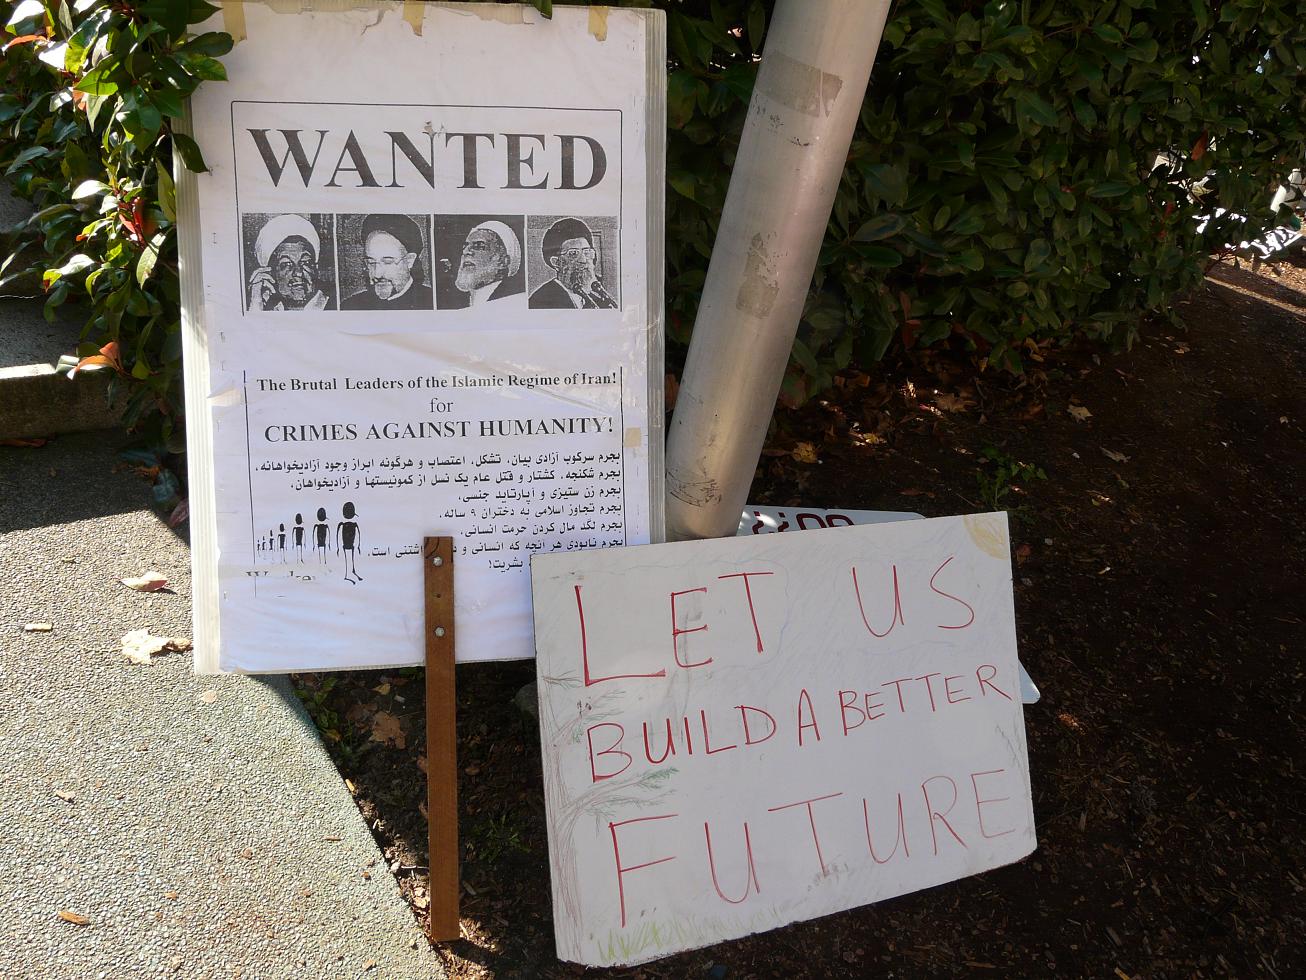 WANTED
The Brutal Leaders of the Islamic Regime of Iran!
for
CRIMES AGAINST HUMANITY!
بجرم سرکوب آزادی بیان، تشکل، اعتصاب و هرگونه ابراز وجود آزادیخواهانه،
بجرم شکنجه، کشتار و قتل عام یک نسل از کمونیستها و آزادیخواهان،
بجرم زن ستیزی و آپارتاید جنسی،
بجرم تجاوز اسلامی به دختران ۹ ساله،
بجرم لگد مال کردن حرمت انسانی،
بجرم نابودی هر آنچه که انسانی و
بشریت!
LET US
BUILD A BETTER
FUTURE